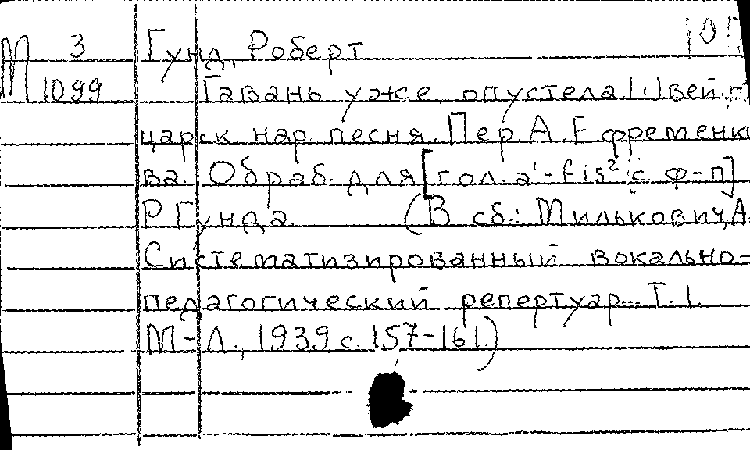 М 3 Гунд, Роберт
1099 Гавань уже опустела! Швей-
царск. нар. песня. Пер. А. Ефременко-
ва. Обраб. для [гол. a¹-fis² с ф-п]
Р. Гунда. (В сб.: Милькович, А.
Систематизированный вокально-
педагогический репертуар. Т. 1.
М.-Л., 1939 с. 157-161)